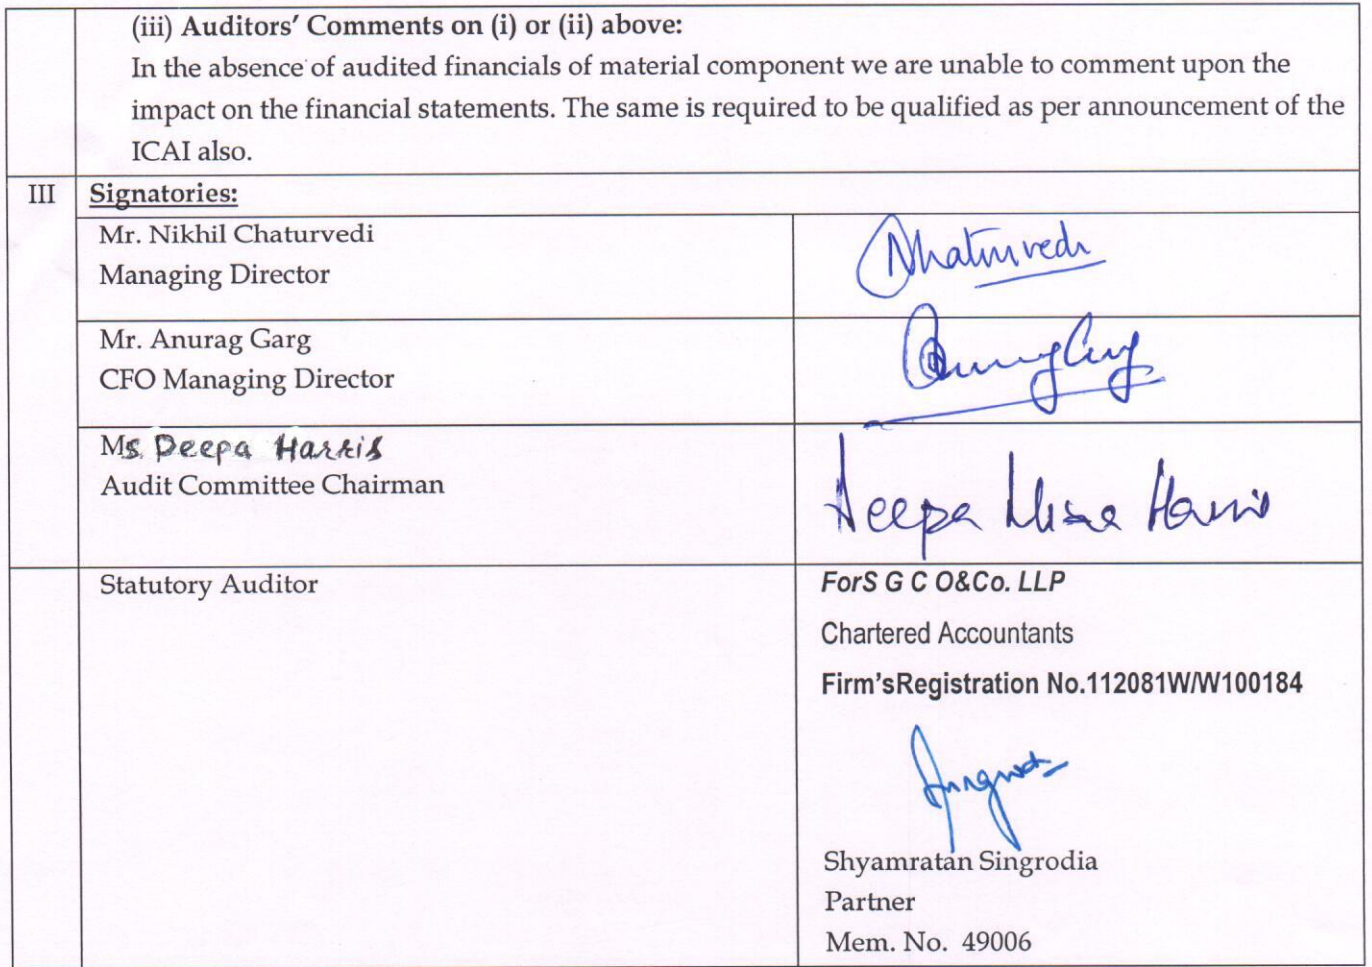 (iii) Auditors' Comments on (i) or (ii) above:
In the absence of audited financials of material component we are unable to comment upon the
impact on the financial statements. The same is required to be qualified as per announcement of the
ICAI also.
III Signatories:
Mr. Nikhil Chaturvedi
Managing Director
Mr. Anurag Garg
CFO Managing Director
Ms Deepa Harris
Audit Committee Chairman
Deepa Misra Harris
Statutory Auditor
ForS G C O&Co. LLP
Chartered Accountants
Firm'sRegistration No.112081W/W100184
Shyamratan Singrodia
Partner
Mem. No. 49006